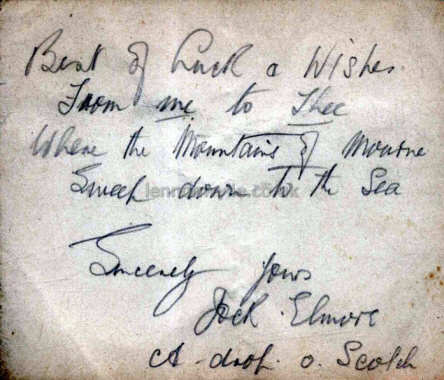 Best of Luck & Wishes
From me to Thee
Where the Mountains of Mourne
Sweep down to the Sea
Sincerely Yours
Jock Elmore
A drop o. Scotch